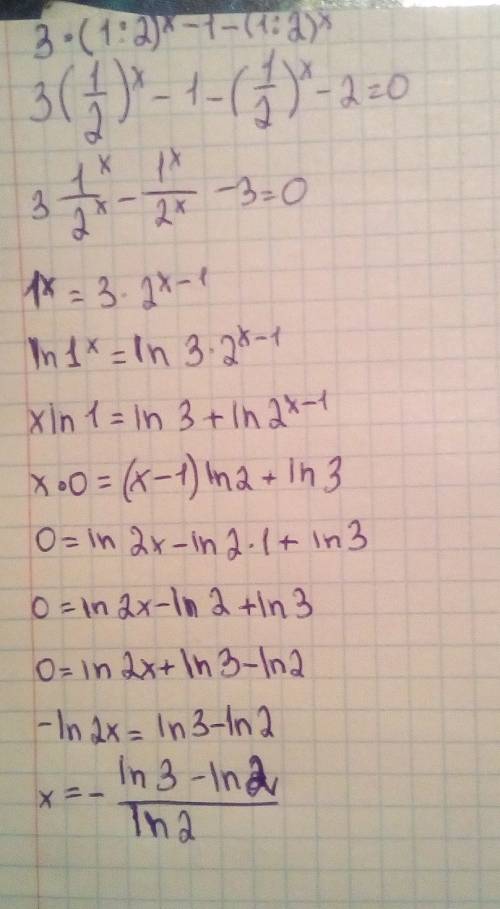 3·(1:2)^x-1-(1:2)^x
3(1/2)^x - 1 - (1/2)^x - 2=0
3 1^x/2^x - 1^x/2^x - 3=0
1^x = 3·2^x-1
ln 1^x = ln 3·2^x-1
x ln 1 = ln 3 + ln 2^x-1
x·0 = (x-1) ln2 + ln 3
0 = ln 2x - ln 2·1 + ln 3
0 = ln 2x - ln 2 + ln 3
0 = ln 2x + ln 3 - ln 2
-ln 2x = ln 3 - ln 2
x = - ln 3 - ln 2 / ln 2